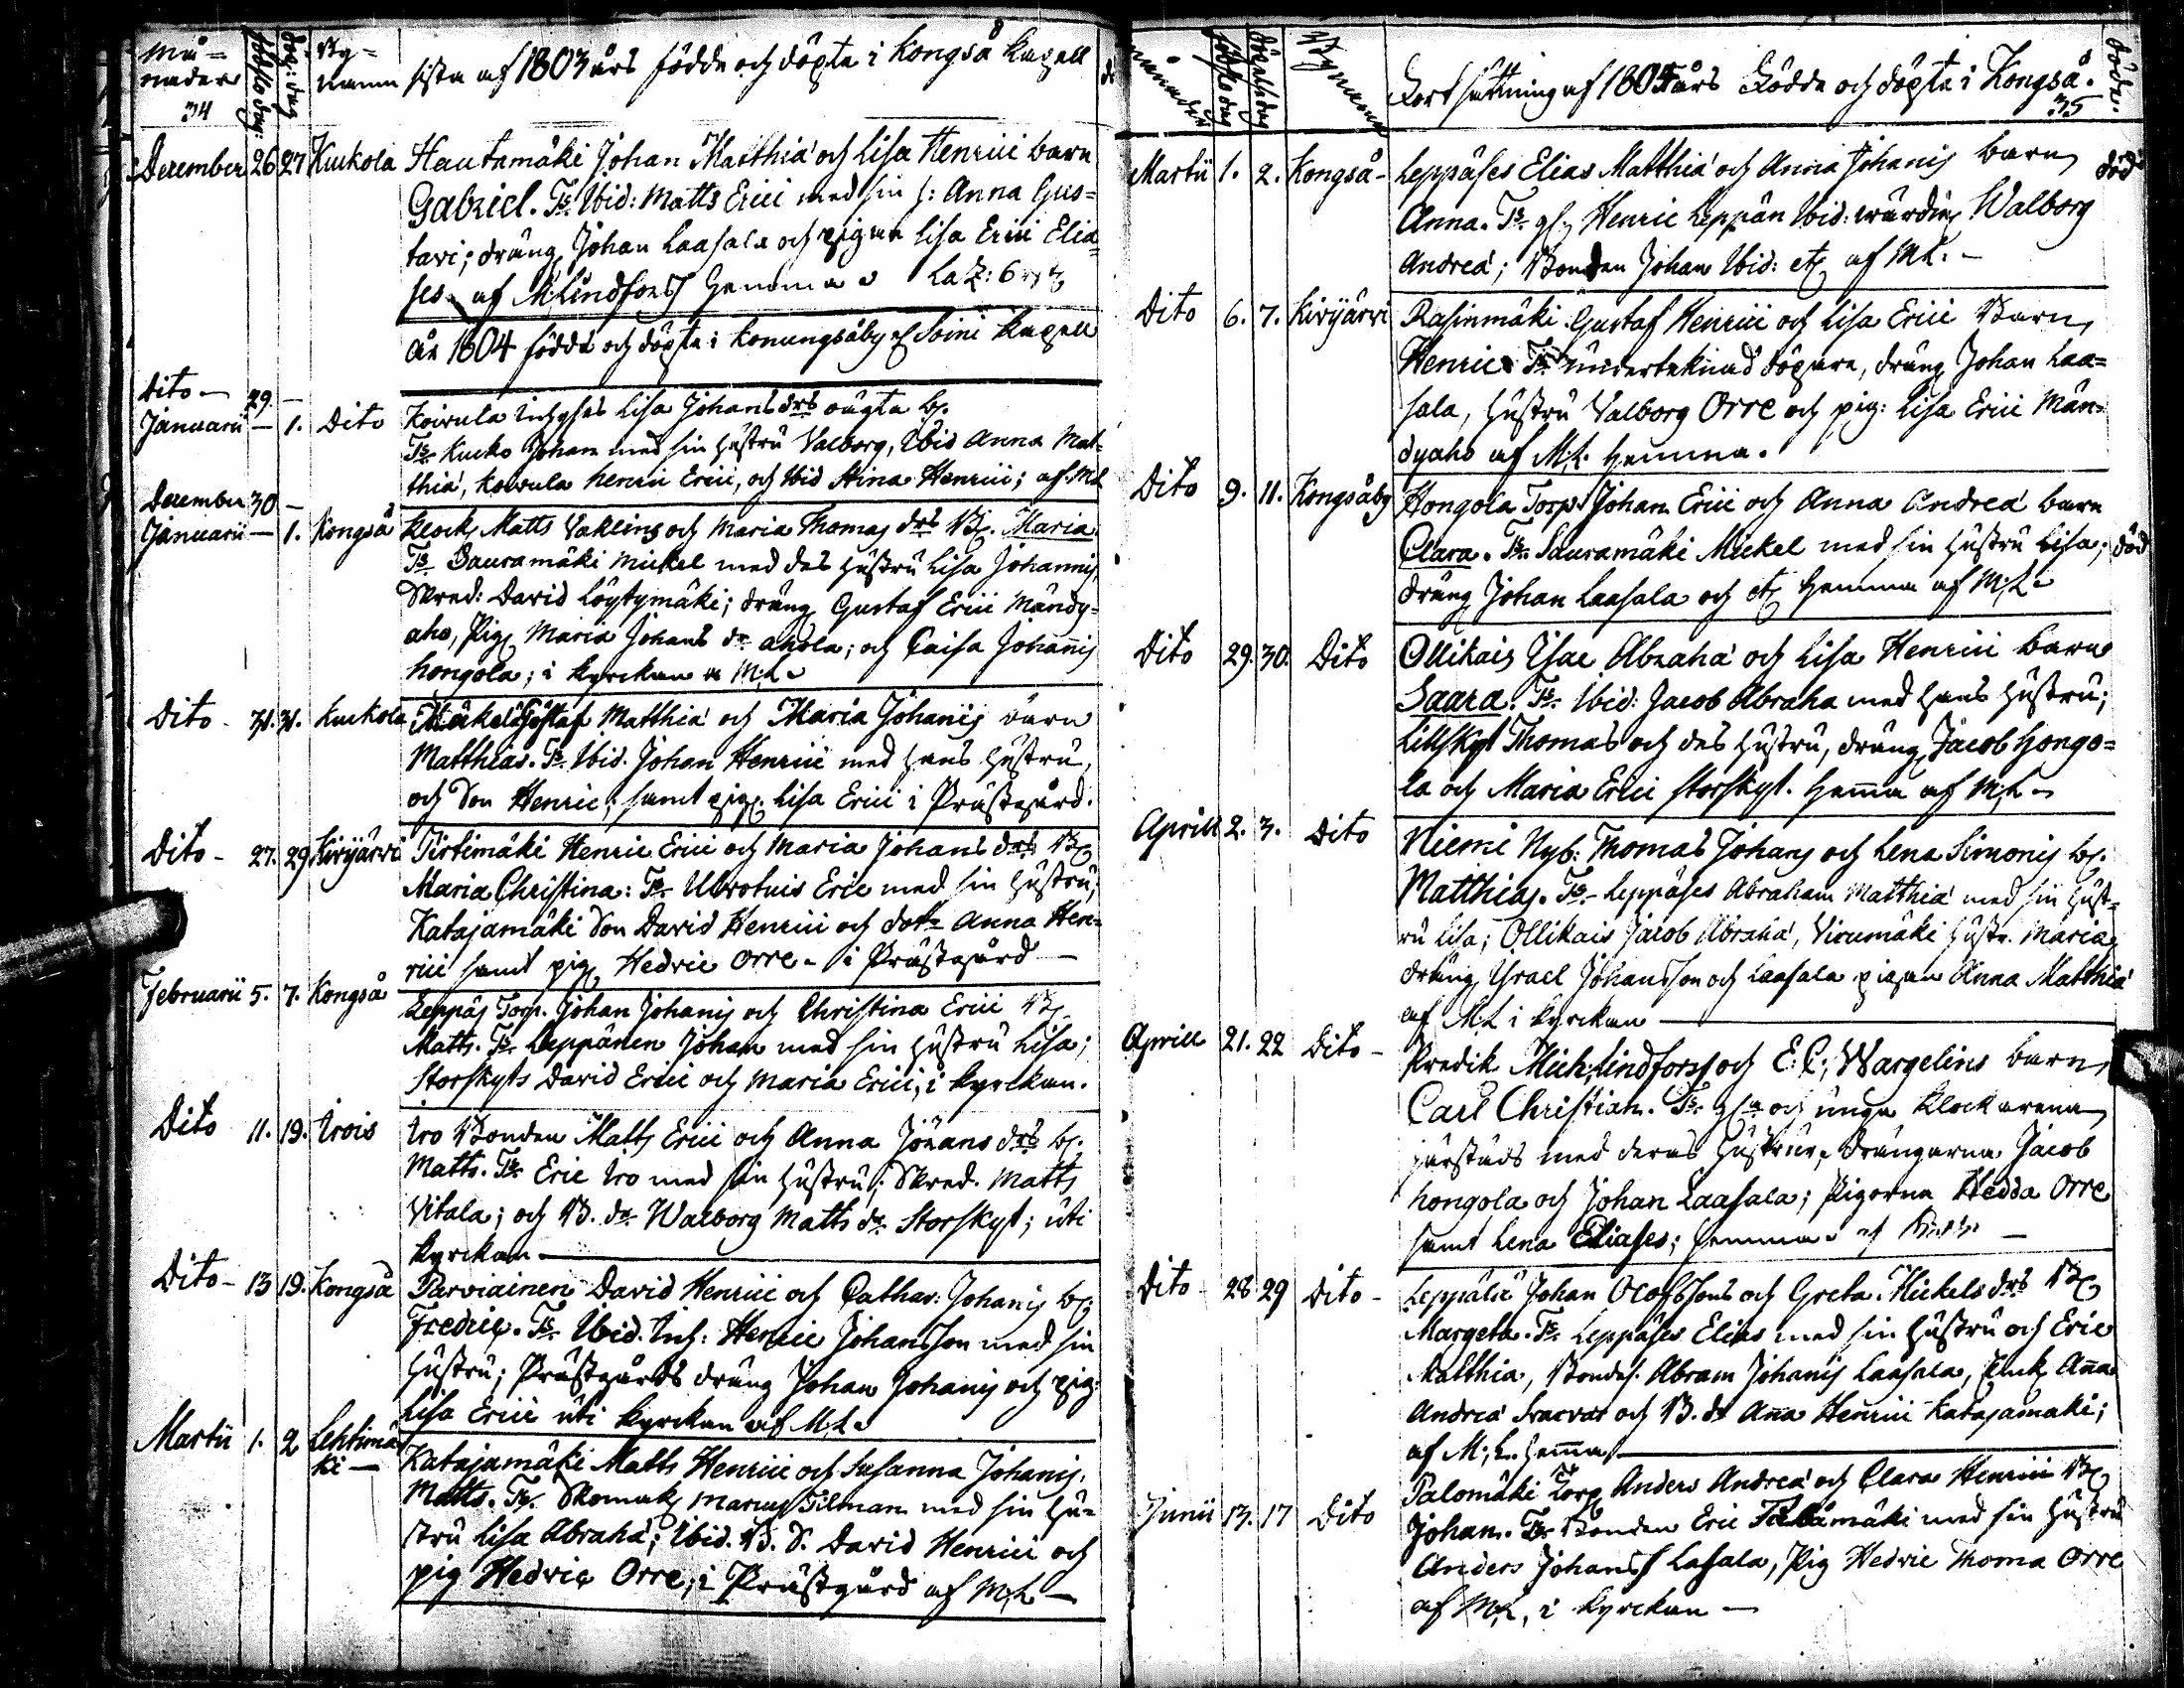 Må=
nader
34
födslo dag:
döp: dag
By=
namn
sista af 1803 års födde och döpte i Kongså Kapell
December 26 27 Kuckola Hautamäki Johan Matthiæ och Lisa Henrici barn
Gabriel. Ts. Ibid: Matts Erici med sin h: Anna Gus=
tavi; dräng Johan Laasala och pigan Lisa Erici Elia=
ses. af M: Lindforss hemma
År 1804 födde och döpte i Konungsåby el Soini Kapell
Dito – 29 –
Januarii – 1. Dito Koivula Lisa Johans drs oägta b.
Ts. Kucko Johan med sin hustru Valborg, Ibid Anna Mat=
thiæ, Koivula Henric Erici, och Ibid Stina Henrici; af ML
December 30 –
Januarii – 1. Kongså Klock Matts Vaklins och Maria Thomas drs B. Maria.
Ts. Sauramäki Mickel med des hustru Lisa Johannis,
Skred: David Löytymäki; dräng Gustaf Erici Mändy=
aho, Pig Maria Johans dr ahola; och Caisa Johannis
hongola; i kyrckan a M:L.
Dito – 31. 31. Kuckola Mäkelä Gustaf Matthiæ och Maria Johanis barn
Matthias. Ts. Ibid. Johan Henrici med hans hustru,
och Son Henric; samt pig. Lisa Erici i Prästgård.
Dito – 27. 29 Kivijärvi Pirtimäki Henric Erici och Maria Johans drs B.
Maria Christina: Ts. Ulvotuis Eric med sin hustru;
Katajamäki Son David Henrici och dotr Anna Hen=
rici samt pig Hedvic Orre – i Prästgård –
Februarii 5. 7. Kongså Leppäs Torp. Johan Johanis och Christina Erici B.
Matts. Ts. Leppänen Johan med sin hustru Lisa;
Storskyts David Erici och Maria Erici, i kyrckan.
Dito 11. 19. Irois Iro Bonden Matts Erici och Anna Johans drs b.
Matts. Ts. Eric Iro med sin hustru; Skred. Matts
Vitala; och B. dr Walborg Matts dr Storskyt; uti
kyrckan –
Dito – 13 19. Kongså Parviainen David Henrici och Cathar: Johanis b.
Fredric. Ts. Ibid. Inh: Henric Johansson med sin
hustru; Prästgårds dräng Johan Johanis och pig:
Lisa Erici uti kyrckan af M:L.
Martii 1. 2 Lehtimä
ki – Katajamäki Matts Henrici och Susanna Johanis.
Matts. Ts. Skomak Marcus Tilman med sin hu=
stru Lisa Abrahæ; Ibid. B. S. David Henrici och
pig Hedvic Orre, i Prästgård af M:L –
månader
födslo dag
döpelse dag
Bynamn
Fortsättning af 1804 års Födde och döpte i Kongså.
35
döde.
Martii 1. 2. Kongså – Leppäses Elias Matthiæ och Anna Johanis barn död
Anna. Ts. Henric Leppän Ibid: värdin Walborg
Andreæ; Bonden Johan Ibid: etc af ML. –
Dito 6. 7. Kivijärvi Rasinmäki Gustaf Henrici och Lisa Erici Barn,
Henric. Ts. underteknad döpare, dräng Johan Laa=
sala, hustru Valborg Orre och pig: Lisa Erici Män=
dyaho af M:L. hemma.
Dito 9. 11. Kongsåby Hongola Torp: Johan Erici och Anna Andreæ barn
Clara. Ts. Sauramäki Mickel med sin hustru Lisa; död
dräng Johan Laasala och etc hemma af M:L.
Dito 29. 30. Dito Ollikais Isac Abrahæ och Lisa Henrici barn
Saara. Ts. Ibid: Jacob Abrahæ med hans hustru;
Lillskyt Thomas och des hustru, dräng Jacob Hongo=
la och Maria Erici Storskyt. hemma af M:L –
Aprill 2. 3. Dito Niemi Nyb: Thomas Johans och Lena Simonis b.
Matthias. Ts. Leppäses Abraham Matthiæ med sin hust=
ru Lisa; Ollikais Jacob Abrahæ, Virumäki hustr. Maria,
dräng Israel Johansson och Laasala pigan Anna Matthiæ
af M:L i kyrckan –
Aprill 21. 22 Dito – Predik. Mich: Lindforss och E: C; Wargelins barn,
Carl Christian. Ts. och unga Klockarena
härstäds med deras hustrur, Drängarna Jacob
hongola och Johan Laasala; Pigorna Hedda Orre
samt Lena Eliases; hemma af –
Dito – 28 29 Dito – Leppälä Johan Olofssons och Greta Mickels drs B.
Margeta. Ts. Leppäses Elias med sin hustru och Eric
Matthiæ, Bondes. Abram Johanis Laasala, Enk. Anna
Andreæ och B. dr Anna Henrici Katajamäki;
af M:L. hemma –
Junii 13. 17 Dito Palomäki Torp Anders Andreæ och Clara Henrici B.
Johan. Ts. Bonden Eric Palomäki med sin hustru
Anders Johanss Lasala, Pig Hedvic Thomæ Orre
af M:L, i kyrckan –